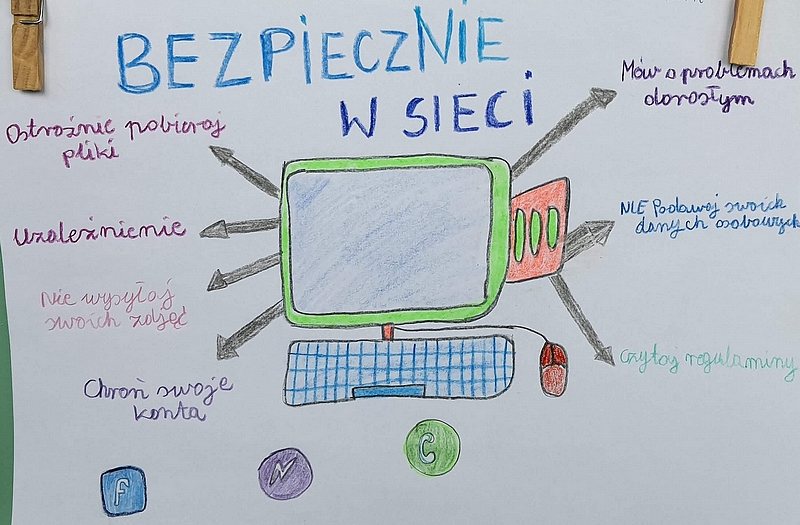 BEZPIECZNIE
W SIECI
Ostrożnie pobieraj
pliki
Uzależnienie
Nie wysyłaj
swoich zdjęć
Chroń swoje
konta
Mów o problemach
dorosłym
NIE Podawaj swoich
danych osobowych
Czytaj regulaminy
F
N
C